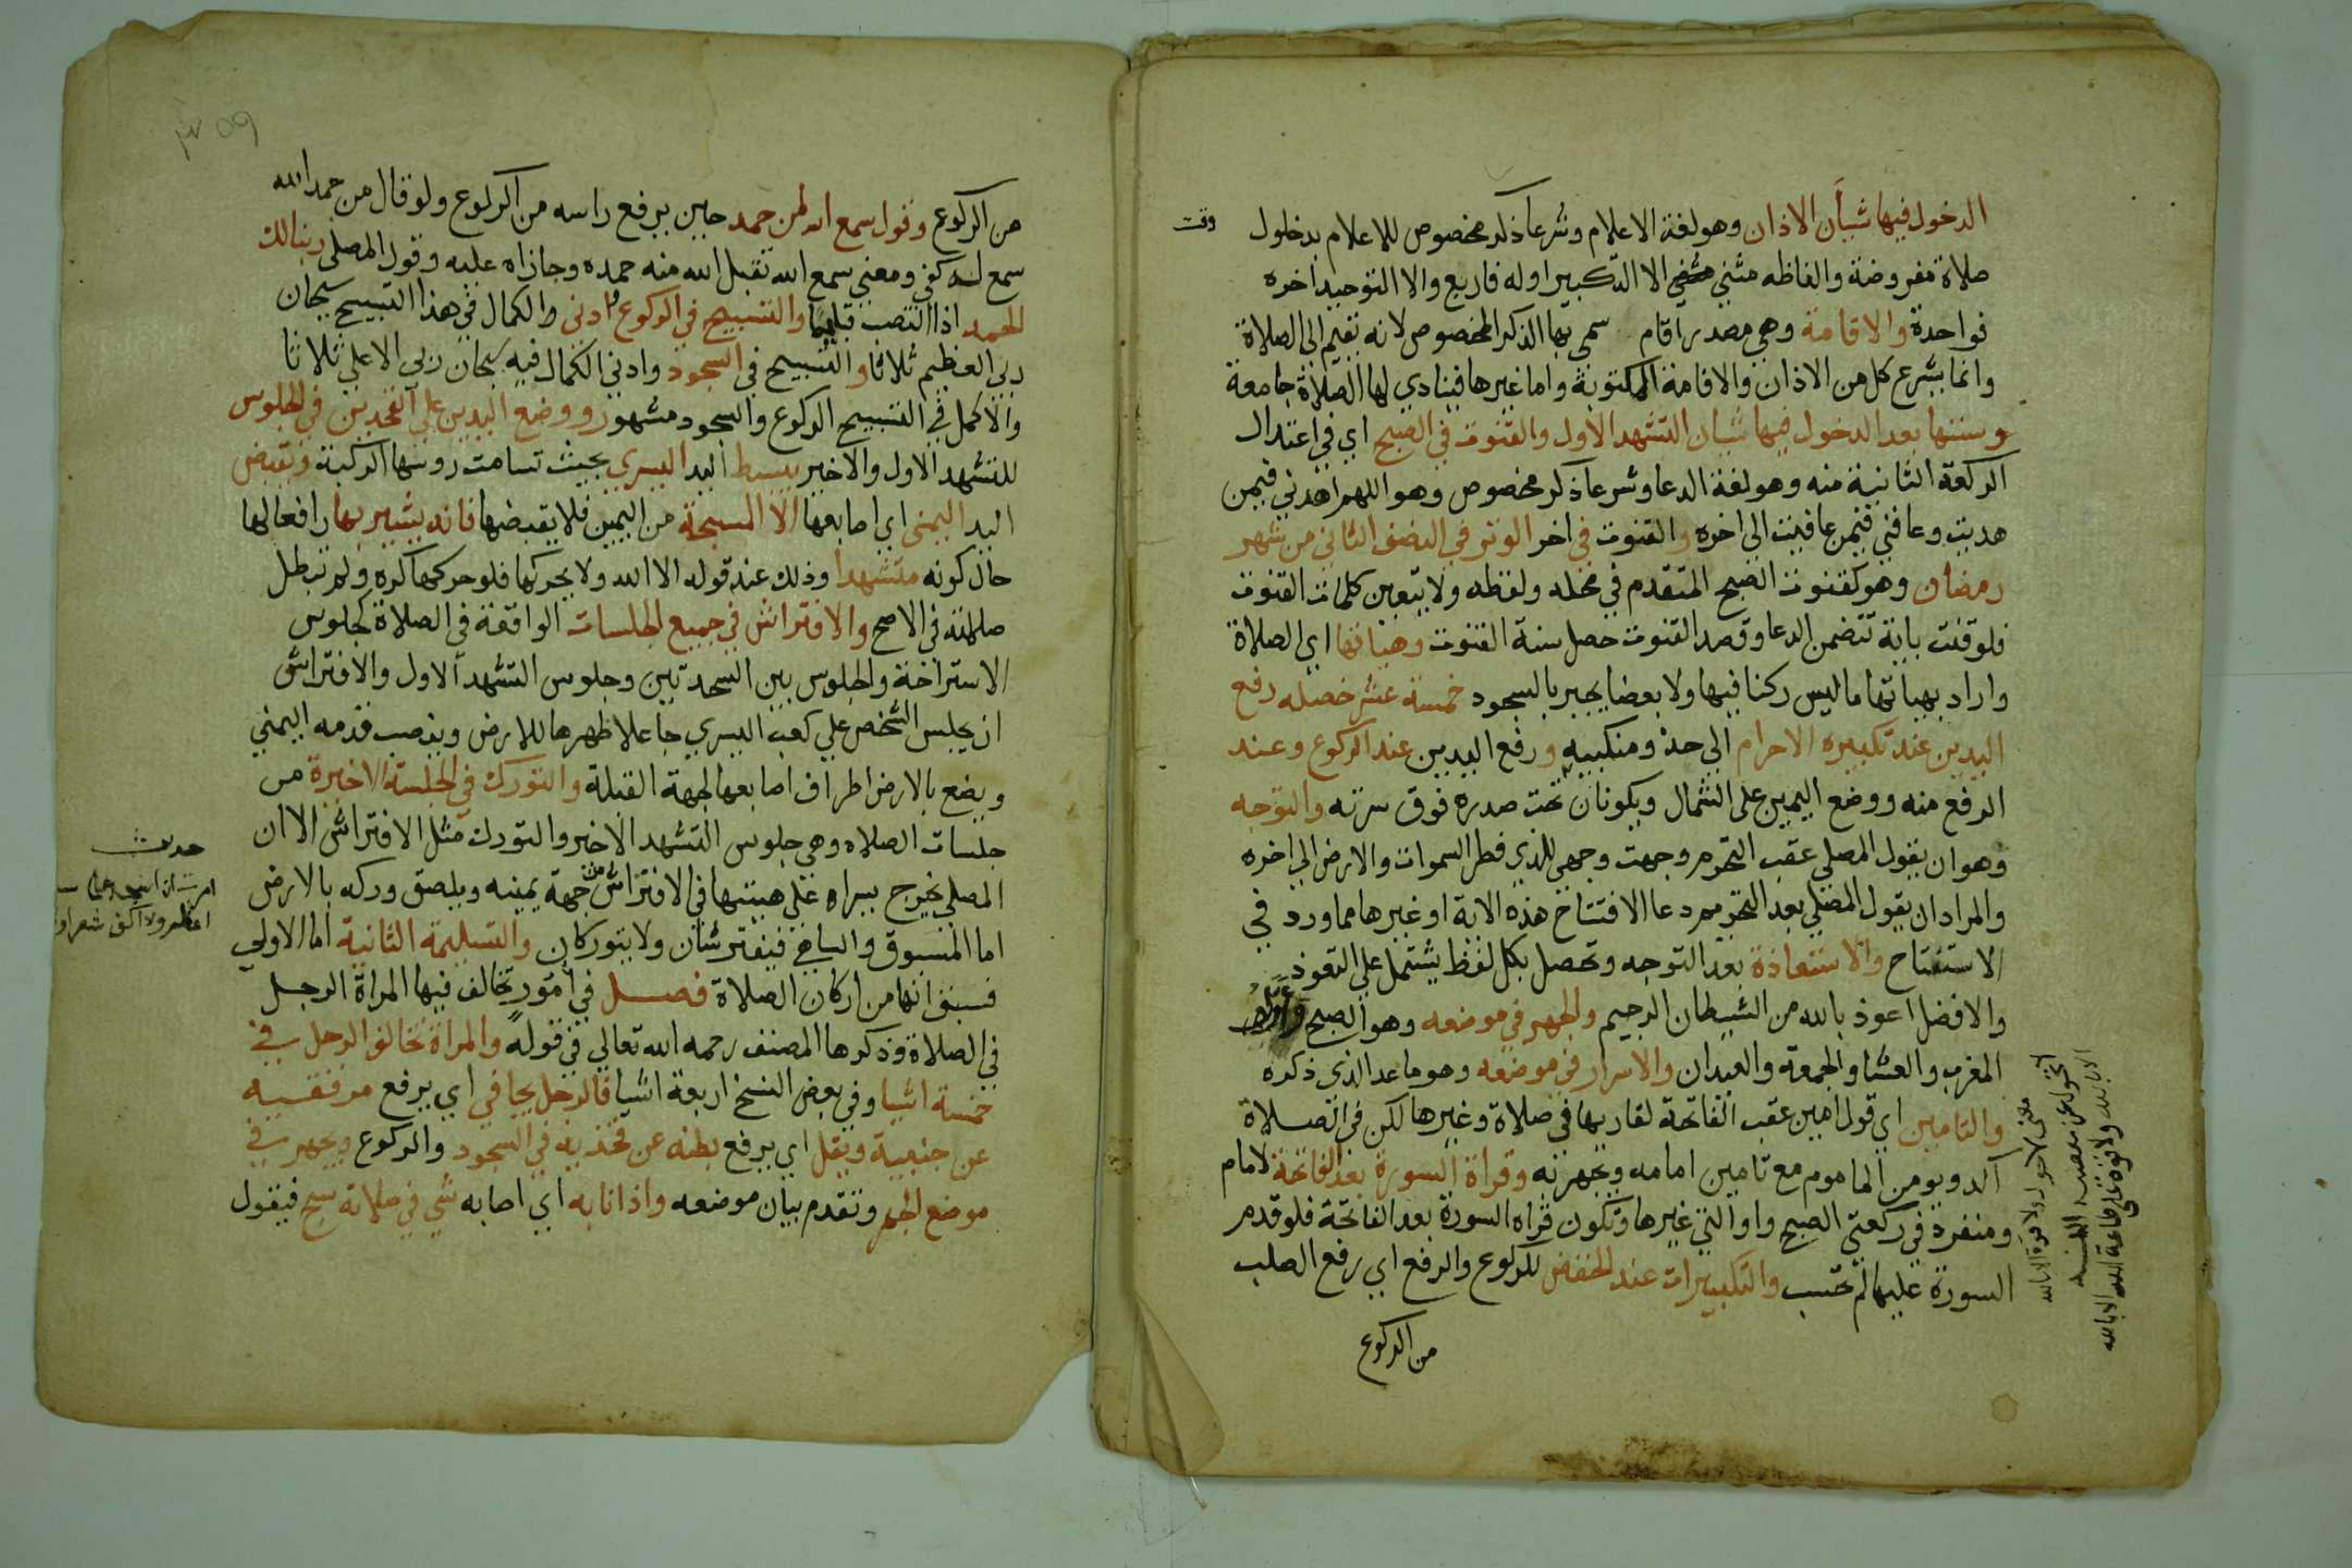 الدخول فيها شيأن الاذان وهو لغة الاعلام وشرعا ذكر مخصوص للاعلام بدخول
وقت
صلاة مفروضة والفاظه مثني مثني الا التكبير اوله فاربع والا التوحيد اخره
فواحدة والاقامة وهي مصدر اقام سمي بها الذكر المخصوص لانه تقيم الى الصلاة
وانما يشرع كل من الاذان والاقامة المكتوبة واما غيرها فينادي لها الصلاة جامعة
وسننها بعد الدخول فيها شيان التشهد الاول والقنوت في الصبح اي في اعتدال
الركعة الثانية منه وهو لغة الدعا وشرعا ذكر مخصوص وهو اللهم اهدني فيمن
هديت وعافني فيمن عافيت الى اخره والقنوت في اخر الوتر في النصف الثاني من شهر
رمضان وهو كقنوت الصبح المتقدم في محله ولفظه ولا يتعين كلمات القنوت
فلو قنت باية تتضمن الدعا وقصد القنوت حصل سنة القنوت وهياتها اي الصلاة
واراد بهياتها ما ليس ركنا فيها ولا بعضا يجبر بالسجود خمسة عشر خصله رفع
اليدين عند تكبيره الاحرام الى حذو منكبيه ورفع اليدين عند الركوع وعند
الرفع منه ووضع اليمين على الشمال ويكونان تحت صدره فوق سرته والتوجه
وهو ان يقول المصلي عقب التحرم وجهت وجهي للذي فطر السموات والارض الى اخره
والمراد ان يقول المصلي بعد التحرم دعا الافتتاح هذه الاية او غيرها مما ورد في
الاستفتاح والاستعاذة بعد التوجه وتحصل بكل لفظ يشتمل على التعوذ
والافضل اعوذ بالله من الشيطان الرجيم والجهر في موضعه وهو الصبح
المغرب والعشا والجمعة والعيدان والاسرار في موضعه وهو ما عدا الذي ذكره
والتامين اي قول امين عقب الفاتحة لقاريها في صلاة وغيرها لكن في الصلاة
اكد ويومن الماموم مع تامين امامه ويجهر به وقراة السورة بعد الفاتحة لامام
ومنفرد في ركعتي الصبح واوالتي غيرها وتكون قراه السورة بعد الفاتحة فلو قدم
السورة عليها لم تحسب والتكبيرات عند الخفض للركوع والرفع اي رفع الصلب
من الركوع
معنى لا حول ولا قوة الا بالله
لا حول عن معصية الله
الا بالله ولا قوة على طاعة الله الا بالله
من الركوع وقول سمع الله لمن حمد حين يرفع راسه من الركوع ولو قال من حمد الله
سمع له كفى ومعني سمع الله تقبل الله منه حمده وجازاه عليه وقول المصلي ربنا لك
الحمد اذا انتصب قايما والتسبيح في الركوع وادنى الكمال في هذا التسبيح سبحان
ربي العظيم ثلاثا والتسبيح في السجود وادني الكمال فيه سبحان ربي الاعلى ثلاثا
والاكمل في التسبيح الركوع والسجود مشهور ووضع اليدين على الفخدين في الجلوس
للتشهد الاول والاخير يبسط اليد اليسري بحيث تسامت روسها الركبة وتقبض
اليد اليمنى اي اصابعها الا المسبحة من اليمين فلا يقبضها فانه يشير بها رافعا لها
حال كونه متشهدا وذلك عند قوله الا الله ولا يحركها فلو حركها كره ولم تبطل
صلاته في الاصح والافتراش في جميع الجلسات الواقعة في الصلاة كجلوس
الاستراحة والجلوس بين السجدتين وجلوس التشهد الاول والافتراش
ان يجلس الشخص على كعب اليسري جاعلا ظهرها للارض وينصب قدمه اليمني
ويضع بالارض اطراف اصابعها لجهة القبلة والتورك في الجلسة الاخيرة من
جلسات الصلاه وهي جلوس التشهد الاخير والتورك مثل الافتراش الا ان
المصلي يخرج يسراه على هيتها في الافتراش من جهة يمينه ويلصق وركه بالارض
اما المسبوق والساهي فيفترشان ولا يتوركان والتسليمة الثانية اما الاولى
فسبق انها من اركان الصلاة فصل في امور تخالف فيها المراة الرجل
في الصلاة وذكرها المصنف رحمه الله تعالي في قوله والمراة تخالف الرجل في
خمسة اشيا وفي بعض النسخ اربعة اشيا فالرجل يجافي اي يرفع مرفقيه
عن جنبيه ويقل اي يرفع بطنه عن فخذيه في السجود والركوع ويجهر في
موضع الجهر وتقدم بيان موضعه واذا نابه اي اصابه شي في صلاته سبح فيقول
حديث
امرت ان اسجد على
اعظم ولا اكف شعرا